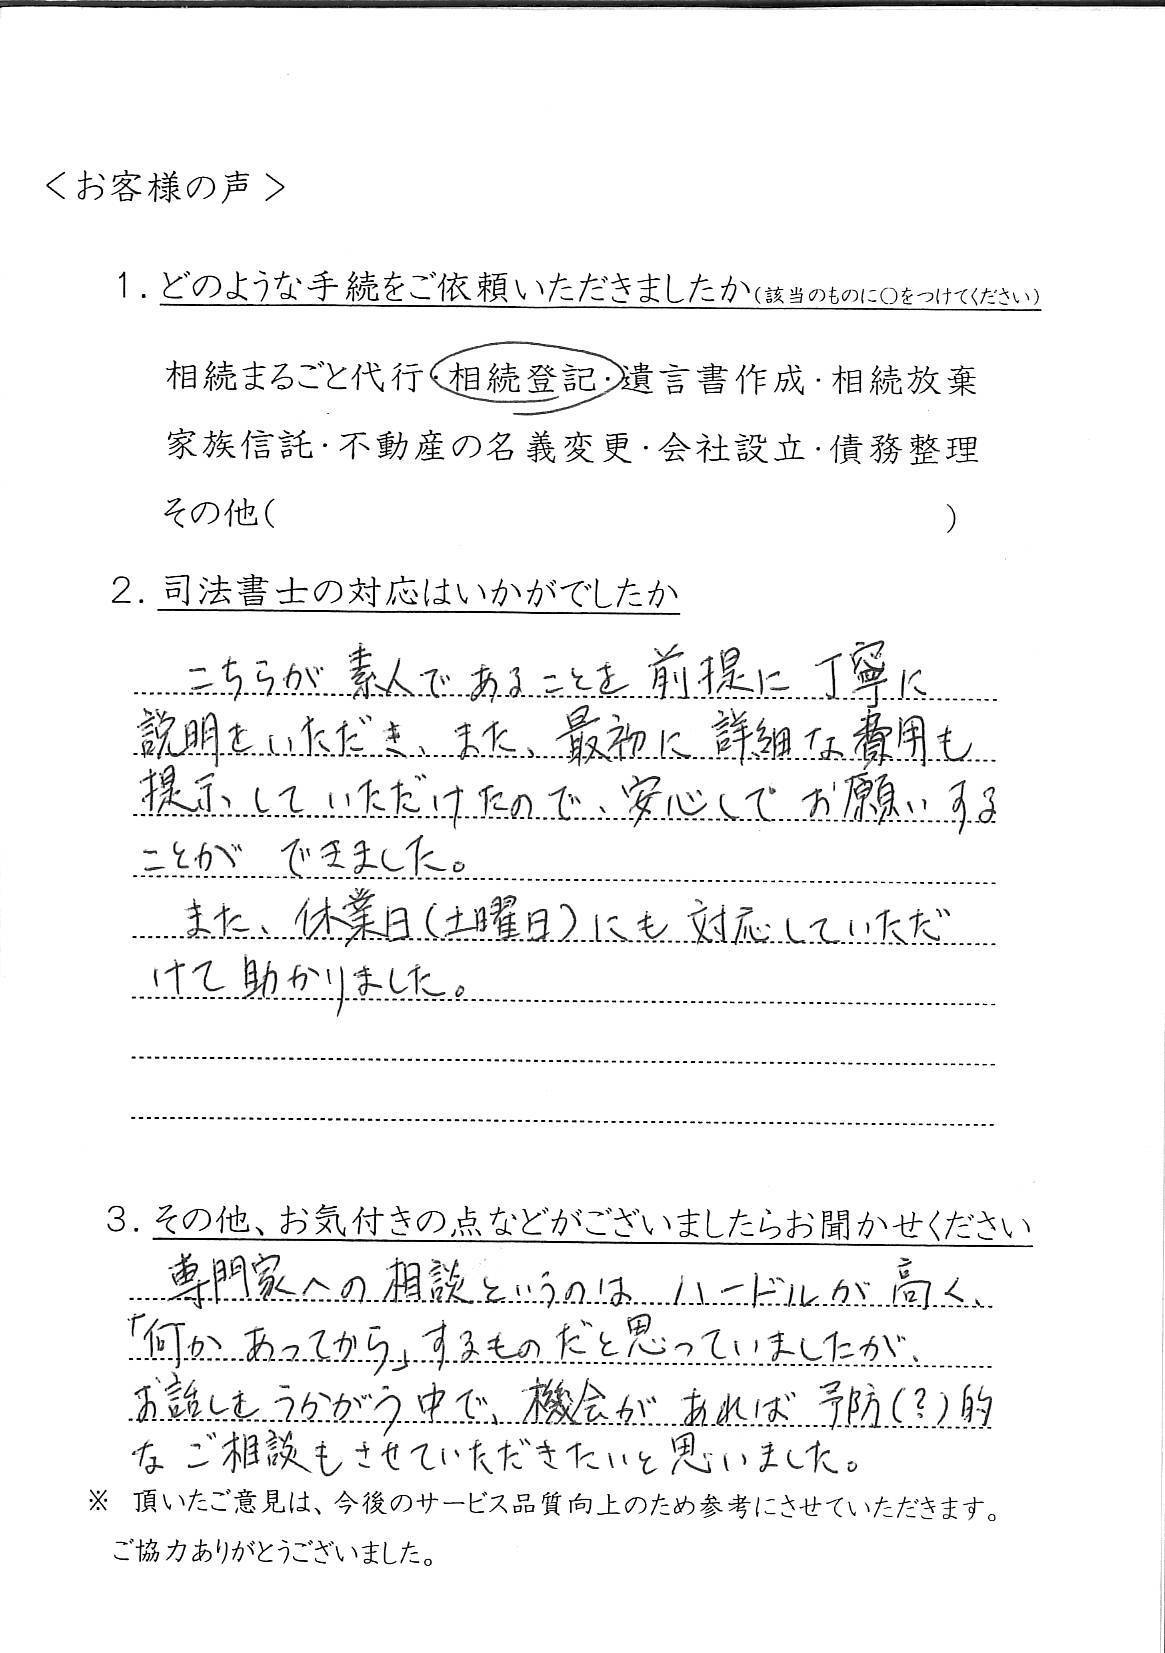 ＜お客様の声＞
1. どのような手続をご依頼いただきましたか(該当のものに〇をつけてください)
相続まるごと代行・相続登記・遺言書作成・相続放棄
家族信託・不動産の名義変更・会社設立・債務整理
その他( )
2. 司法書士の対応はいかがでしたか
こちらが素人であることを前提に丁寧に
説明をいただき、また、最初に詳細な費用も
提示していただけたので、安心してお願いする
ことができました。
また、休業日(土曜日)にも対応していただ
けて助かりました。
3. その他、お気付きの点などがございましたらお聞かせください
専門家への相談というのはハードルが高く、
「何かあってから」するものだと思っていましたが、
お話しをうかがう中で、機会があれば予防(?)的
なご相談もさせていただきたいと思いました。
※ 頂いたご意見は、今後のサービス品質向上のため参考にさせていただきます。
ご協力ありがとうございました。